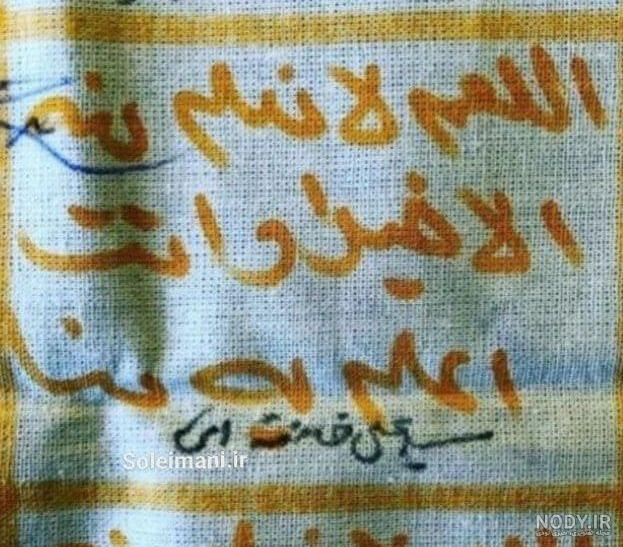 اللهم لا نعلم منه
الا خیرا و انت
اعلم به منا
سید علی خامنه ای
Soleimani.ir
NODY.IR